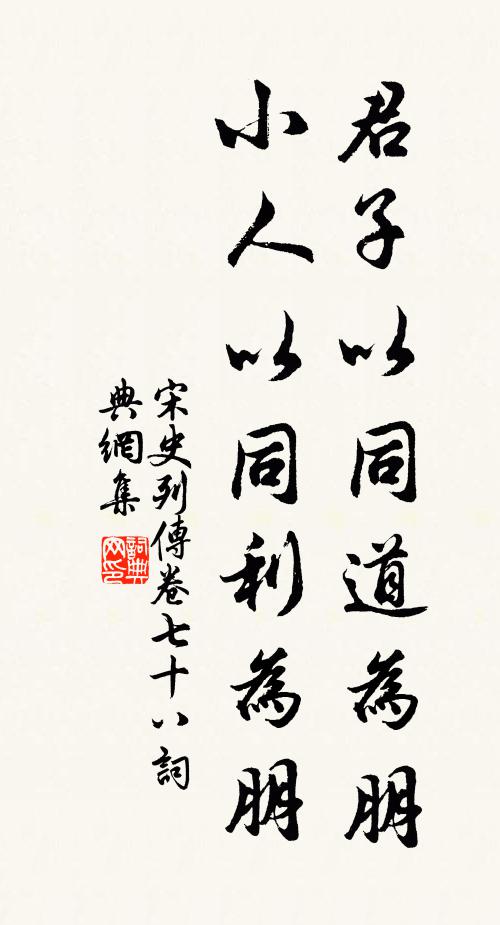 君子以同道為朋
小人以同利為朋
宋史列傳卷七十八詞
典網集
詞典網印